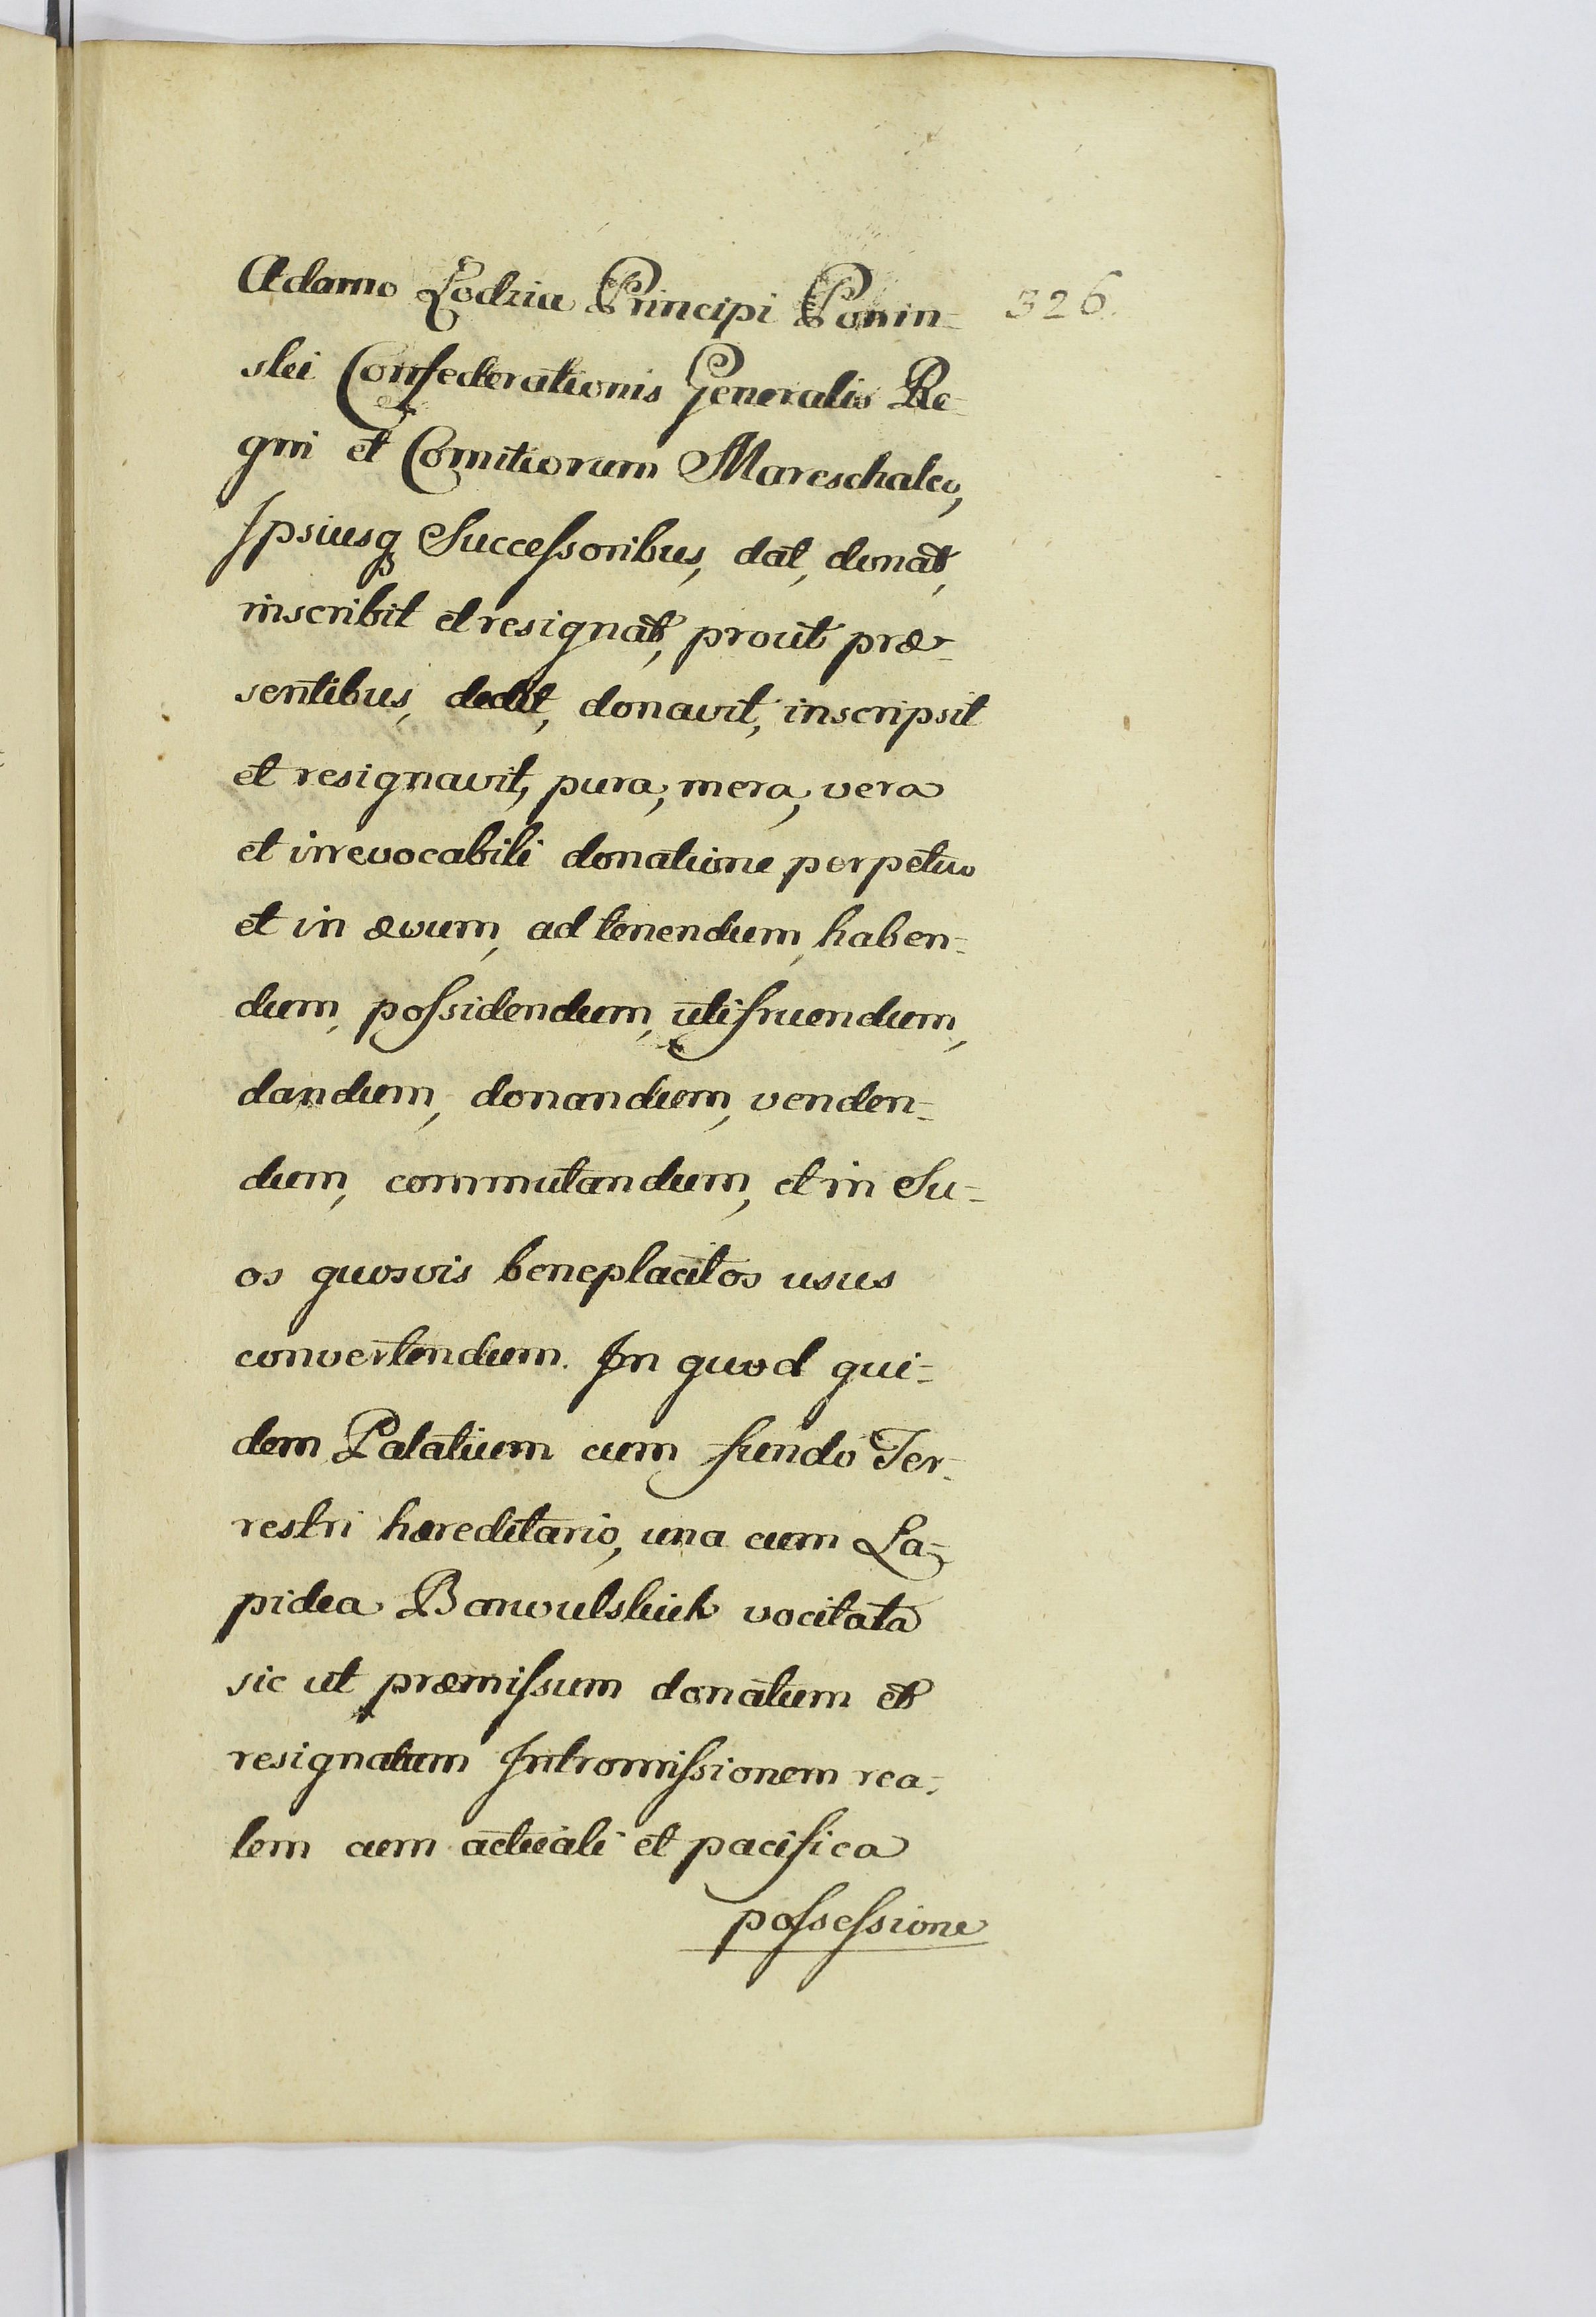 Adamo Lodzia Principi Ponin=
326.
ski Confederationis Generalis Re=
gni et Comitiorum Mareschalco,
Ipsiusq Succeſsoribus, dat, donat,
inscribit et resignat, prout præ=
sentibus, dedit, donavit, inscripsit
et resignavit, pura, mera, vera
et irrevocabili donatione perpetuo
et in ævum, ad tenendum, haben=
dum, poſsidendum, utifruendum,
dandum, donandum, venden=
dum, commutandum, et in Su=
os quosvis beneplacitos usus
convertendum. In quod qui=
dem Palatium cum fundo Ter=
restri hæreditario, una cum La=
pidea Barwulskich vocitata
sic ut præmiſsum donatum et
resignatum Intromiſsionem rea=
lem cum actuali et pacifica
poſseſsione